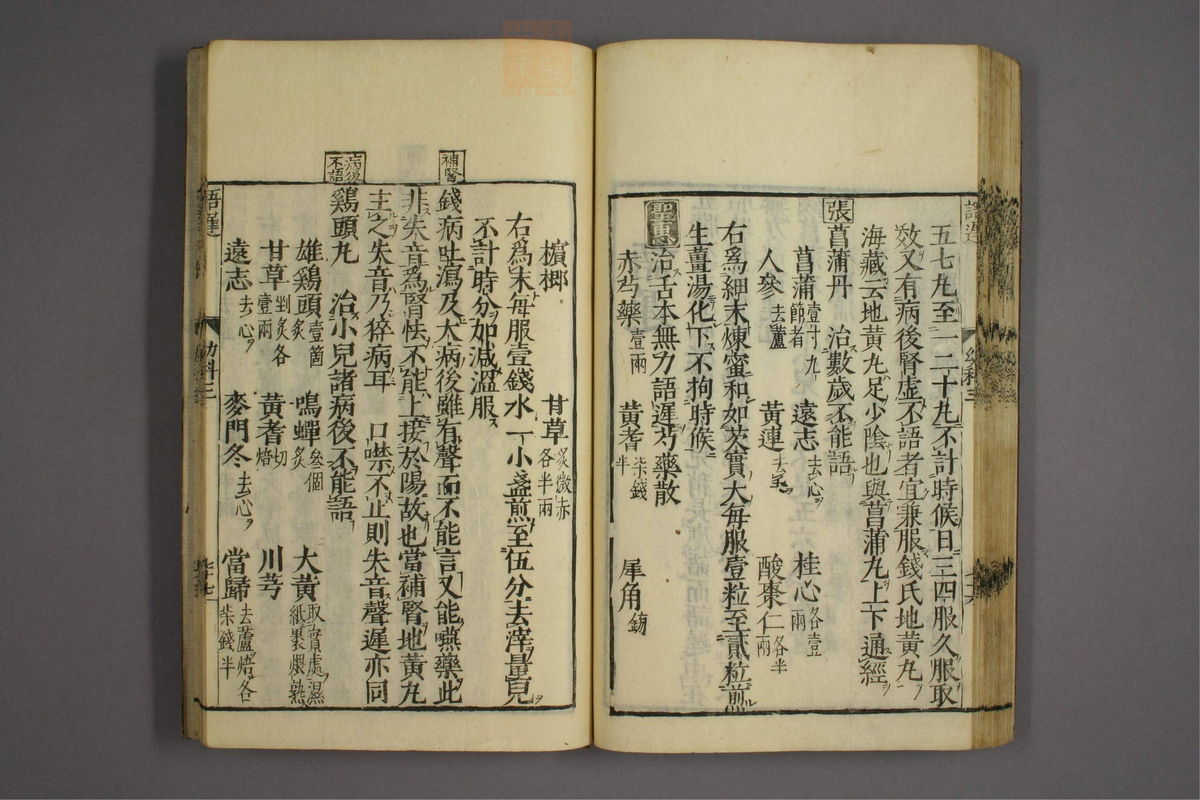 語遲
五七丸至一二十丸不計時候日三四服久服取
效又有病後腎虛不語者宜兼服錢氏地黄丸
海藏云地黄丸足少陰也與菖蒲丸上下通經
張
菖蒲丹 治數歲不能語
菖蒲壹寸九節者 遠志去心 桂心各壹兩
人參去蘆 黄連去毛 酸棗仁各半兩
右爲細末煉蜜和如芡實大每服壹粒至貳粒煎
生薑湯化下不拘時候
聖惠
治舌本無力語遲芍藥散
赤芍藥壹兩 黄耆柒錢半 犀角鎊
檳榔 甘草炙微赤各半兩
右爲末每服壹錢水一小盞煎至伍分去滓量兒
不計時分如減溫服
補腎
錢病吐瀉及大病後雖有聲而不能言又能嚥藥此
非失音爲腎怯不能上接於陽故也當補腎地黄丸
主之失音乃猝病耳 口噤不止則失音聲遲亦同
病後不語
鷄頭丸 治小兒諸病後不能語
雄鷄頭壹箇炙 鳴蟬叁個炙 大黄取實處濕紙裹煨熟
甘草剉炙各壹兩 黄耆切焙 川芎
遠志去心 麥門冬去心 當歸去蘆焙各柒錢半
語遲
幼科三
七十七